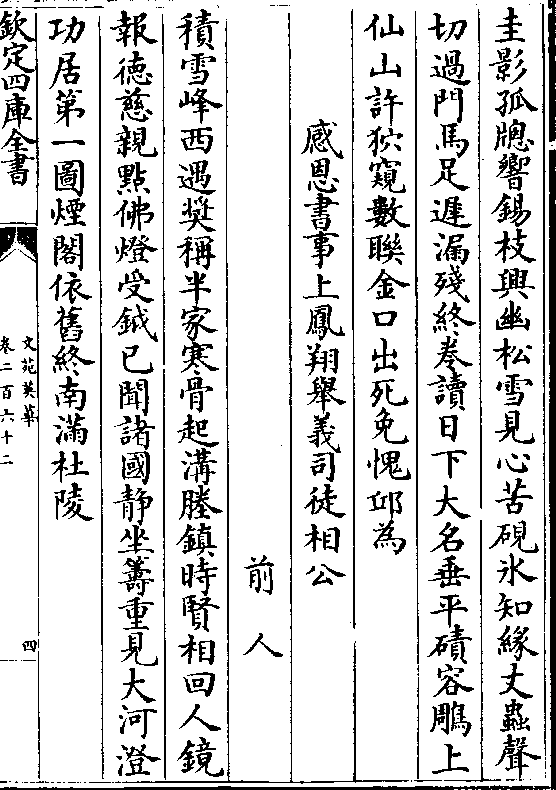 圭影孤牕響錫枝興幽松雪見心苦硯氷知緣丈蟲聲
切過門馬足遲漏殘終巻讀日下大名垂平磧容鵰上
仙山許狖窺數聯金口出死免愧邱為
感恩書事上鳳翔舉義司徒相公
前人
積雪峰西遇奨稱半家寒骨起溝塍鎮時賢相回人鏡
報徳慈親點佛燈受鉞已聞諸國静坐籌重見大河澄
功居第一圖煙閣依舊終南滿杜陵
欽定四庫全書
文苑英華
卷二百六十二
四